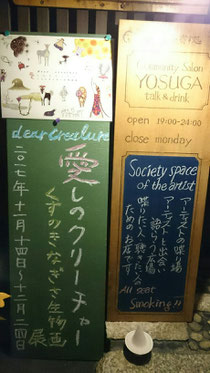 dear Creature
愛しのクリーチャー
くすのきなぎさ生物画展
二〇一七年十一月十四日〜十二月二四日
Community Salon
YOSUGA
talk & drink
open 19:00-24:00
close monday
Society space
of the artist
アーティストの喋り場
アーティストと出会い
語らう広場
喋りたい人、聴きたい人の
ためのお店です
All seat
Smoking